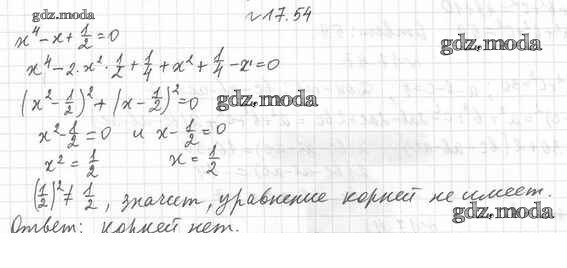 gdz.moda
№17.54
x⁴ - x + 1/2 = 0
gdz.moda
x⁴ - 2·x²·1/2 + 1/4 + x² + 1/4 - x = 0
(x² - 1/2)² + (x - 1/2)² = 0
gdz.moda
x² - 1/2 = 0 и x - 1/2 = 0
x² = 1/2 x = 1/2
(1/2)² ≠ 1/2, значит, уравнение корней не имеет.
gdz.moda
Ответ: корней нет.